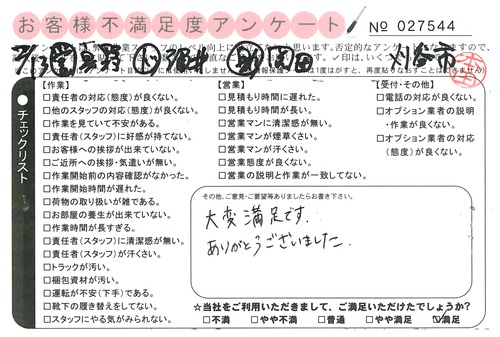 お客様不満足度アンケート
No 027544
刈谷市
チェックリスト
【作業】
□責任者の対応(態度)が良くない。
□他のスタッフの対応(態度)が良くない。
□作業を見ていて不安がある。
□責任者(スタッフ)に好感が持てない。
□お客様への挨拶が出来ていない。
□ご近所への挨拶・気遣いが無い。
□作業開始前の内容確認がなかった。
□作業開始時間が遅れた。
□荷物の取り扱いが雑である。
□お部屋の養生が出来ていない。
□作業時間が長すぎる。
□責任者(スタッフ)に清潔感が無い。
□責任者(スタッフ)が汗くさい。
□トラックが汚い。
□梱包資材が汚い。
□運転が不安(下手)である。
□靴下の履き替えをしてない。
□スタッフにやる気がみられない。
【営業】
□見積もり時間に遅れた。
□見積もり時間が長い。
□営業マンに清潔感が無い。
□営業マンが煙草くさい。
□営業マンが汗くさい。
□営業態度が良くない。
□営業の説明と作業が一致してない。
【受付・その他】
□電話の対応が良くない。
□オプション業者の説明
・作業が良くない。
□オプション業者の対応
(態度)が良くない。
その他、ご意見・ご要望等ありましたらお書き下さい。
大変満足です。
ありがとうございました。
☆当社をご利用いただきまして、ご満足いただけたでしょうか?
□不満 □やや不満 □普通 □やや満足 ☑満足